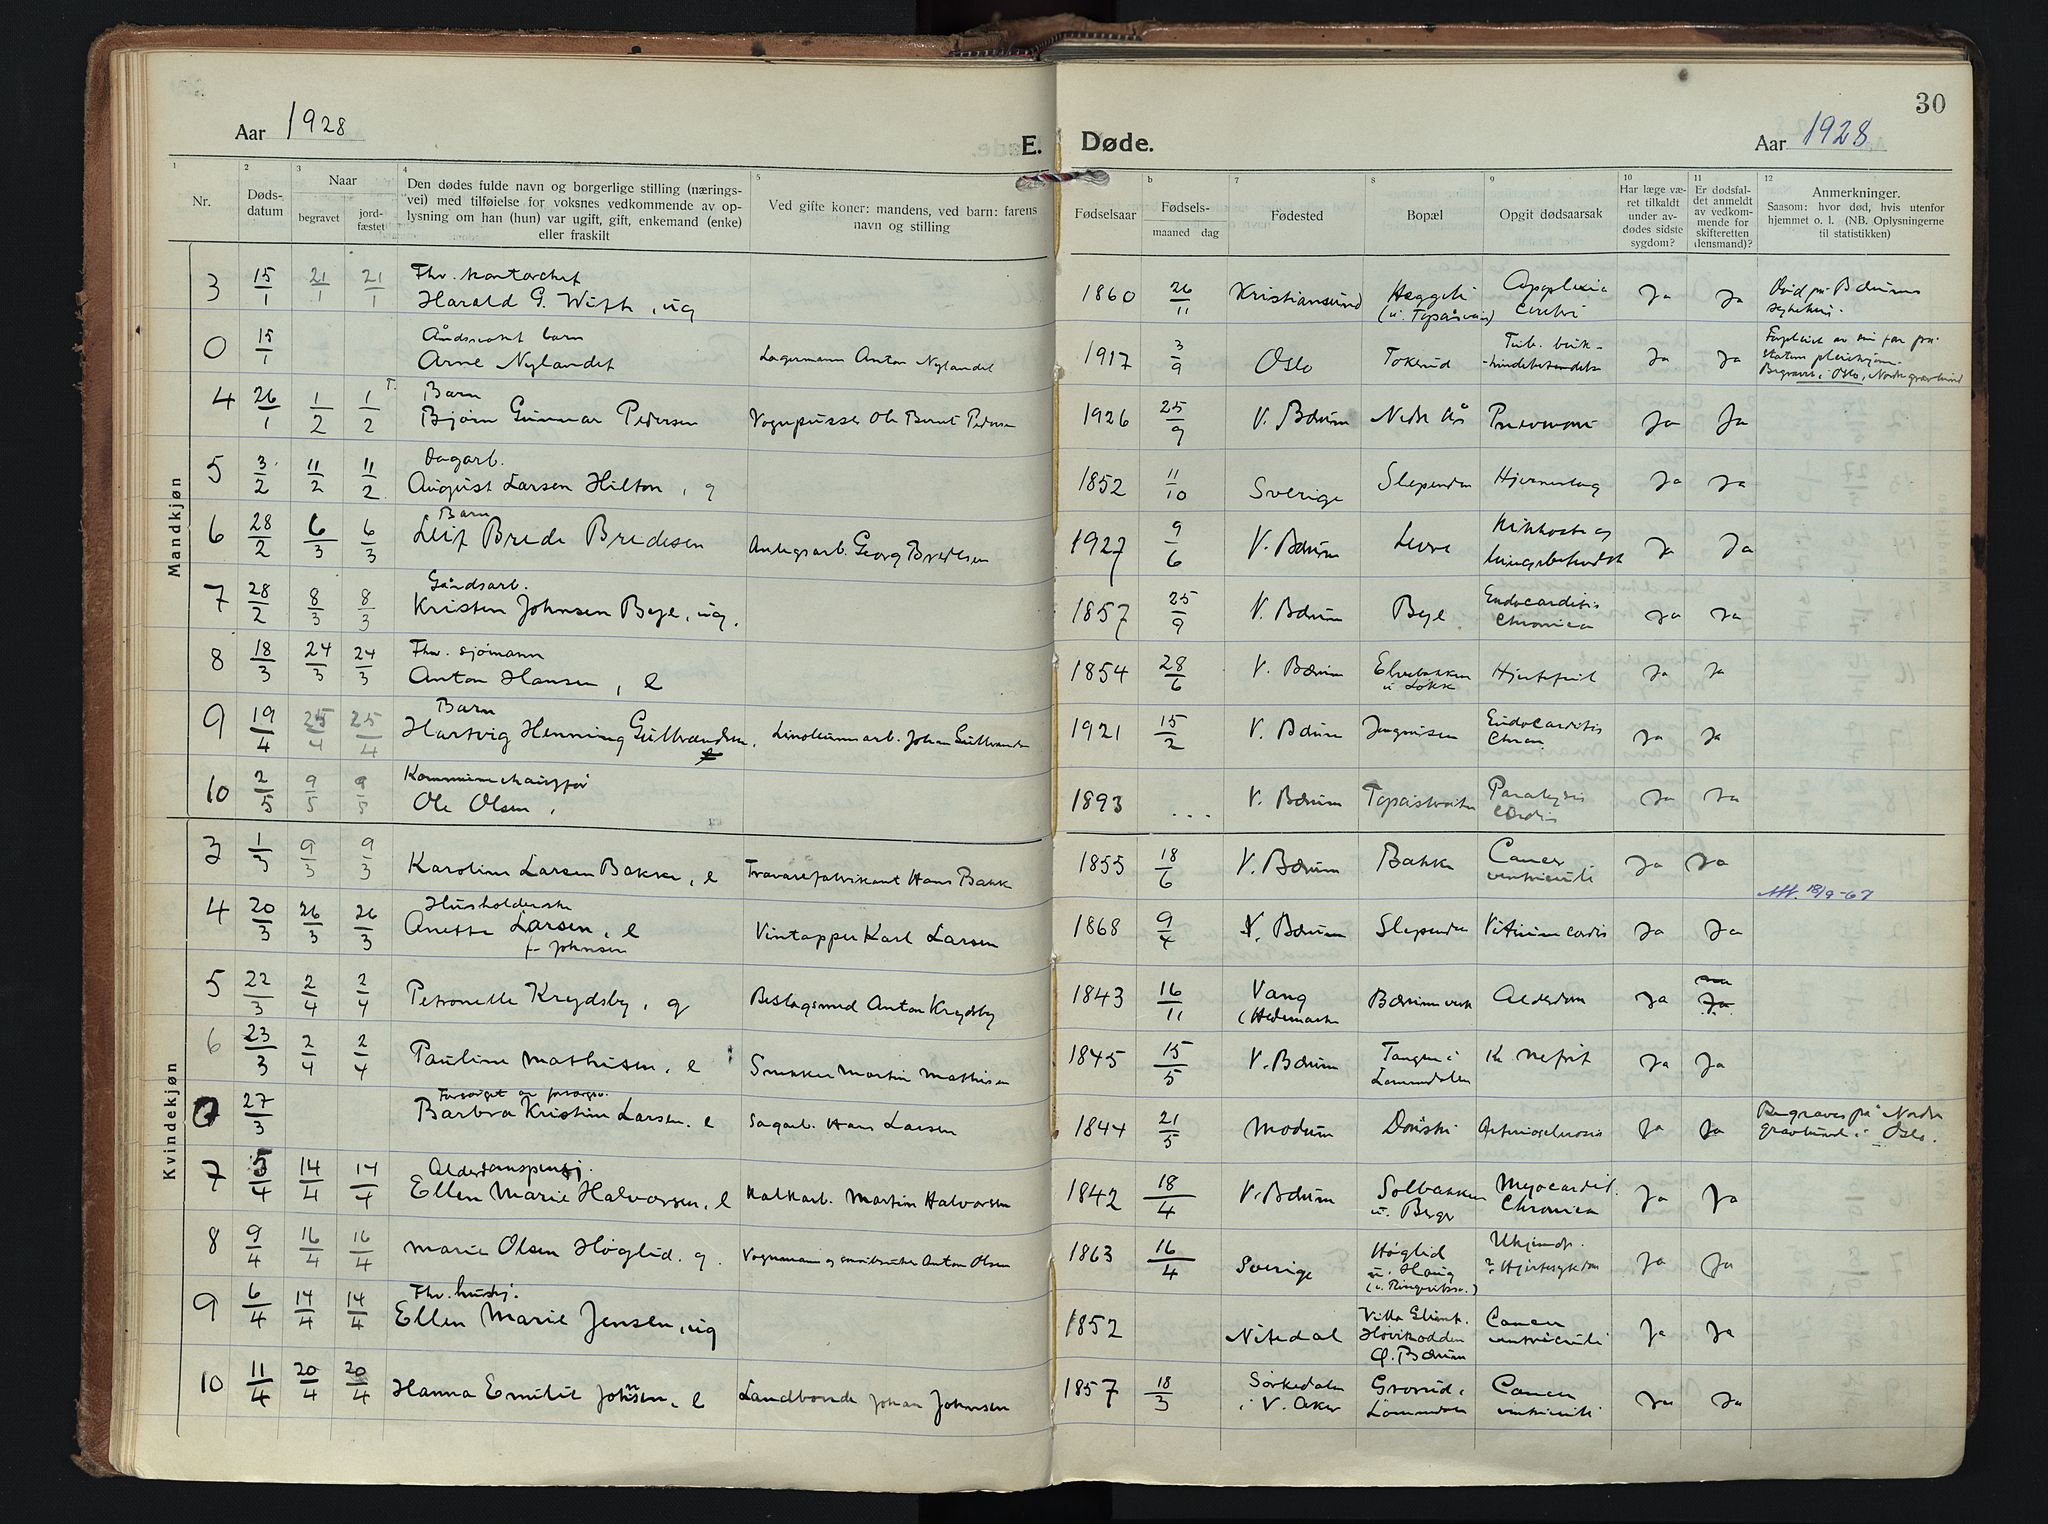 30
Aar 1928
E. Døde.
Aar 1928
1 2 3 4 5 b 7 8 9 10 11 12
Nr.
Døds-
datum
Naar
begravet
jord-
fæstet
Den dødes fulde navn og borgerlige stilling (nærings-
vei) med tilføielse for voksnes vedkommende av op-
lysning om han (hun) var ugift, gift, enkemand (enke)
eller fraskilt
Ved gifte koner: mandens, ved barn: farens
navn og stilling
Fødselsaar
Fødsels-
maaned dag
Fødested
Bopæl
Opgit dødsaarsak
Har læge væ-
ret tilkaldt
under av-
dødes sidste
sygdom?
Er dødsfal-
det anmeldt
av vedkom-
mende for
skifteretten
(lensmand)?
Anmerkninger.
Saasom: hvor død, hvis utenfor
hjemmet o. l. (NB. Oplysningerne
til statistikken)
Mandkjøn
3 15/1 21/1 21/1 Fhv. Harald G. , ug 1860 26/11 Kristiansund Apoplexia cerebri Ja Ja Bærums
0 15/1 Åndssvakt barn
Arne Nylandet Lagermann Anton Nylandet 1917 3/9 Oslo Tokerud Tub. Ja Ja
Begravet i Oslo, Nordre gravlund
4 26/1 1/2 1/2 Barn
Bjørn Gunnar Pedersen Vognpusser Ole Bernt Pedersen 1926 25/9 V. Bærum Nedre Ås Ja Ja
5 3/2 11/2 11/2 Dagarb.
August Larsen Hilton, g 1852 11/10 Sverige Slependen Hjerneslag Ja Ja
6 28/2 6/3 6/3 Barn
Leif Brede Bredesen Anlegsarb. Georg Bredesen 1927 9/6 V. Bærum Levre Kikhoste og Ja Ja
7 28/2 8/3 8/3 Gårdsarb.
Kristen Johnsen Beje, ug. 1857 25/9 V. Bærum Beje Endocarditis
chronica Ja Ja
8 18/3 24/3 24/3 Fhv. sjømann
Anton Hansen, e 1854 28/6 V. Bærum Elvebakken
u. Løkke Hjertefeil Ja Ja
9 19/4 25/4 25/4 Barn
Hartvig Henning Gulbrandsen, Linoleumsarb. Johan Gulbrandsen 1921 15/2 V. Bærum Endocarditis
chron Ja Ja
10 2/5 9/5 9/5 Ole Olsen, 1893 ... V. Bærum Paralysis
cordis Ja Ja
Kvindekjøn
3 1/3 9/3 9/3 Karoline Larsen Bakke, e Trævarefabrikant Hans Bakke 1855 18/6 V. Bærum Bakke Cancer
ventriculi Ja Ja
Att. 18/9-67
4 20/3 26/3 26/3 Husholderske
Anette Larsen, e
f. Johnsen Vintapper Karl Larsen 1868 9/4 V. Bærum Slependen Vitium cordis Ja Ja
5 22/3 2/4 2/4 Petronelle Krydsby, g Beslagsmed Anton Krydsby 1843 16/11 Vang
(Hedemarken Bærums verk Alderdom Ja Ja
6 23/3 2/4 2/4 Pauline Mathisen, e Snekker Martin Mathisen 1845 15/5 V. Bærum Tangen i
Lommedalen Kr. nefrit Ja Ja
0 27/3 Forsørget av forsorgsv.
Barbra Kristine Larsen, e Sagarb. Hans Larsen 1844 21/5 Modum Dønski Arteriosclerosis Ja Ja Begraves på Nordre
gravlund i Oslo.
7 5/4 14/4 14/4 Alderdomspensj.
Ellen Marie Halvorsen, e Kalkarb. Martin Halvorsen 1842 18/4 V. Bærum Solbakken
u. Berger Myocardit.
Chronica Ja Ja
8 9/4 16/4 16/4 Marie Olsen Høglid, g. Vognmann og småbruker Anton Olsen 1863 16/4 Sverige Høglid
u. Haug
(v. Ringeriksv.) Ukjendt.
? Hjertesykdom Ja Ja
9 6/4 14/4 14/4 Fhv. hush.
Ellen Marie Jensen, ug 1852 Nitedal Villa
Høvikodden
Ø. Bærum Cancer
ventriculi Ja Ja
10 11/4 20/4 20/4 Hanna Emilie Johnsen, e Landbonde Johan Johnsen 1857 18/3 Sørkedalen
i V. Aker Grorud i
Lommedalen Cancer
ventriculi Ja Ja